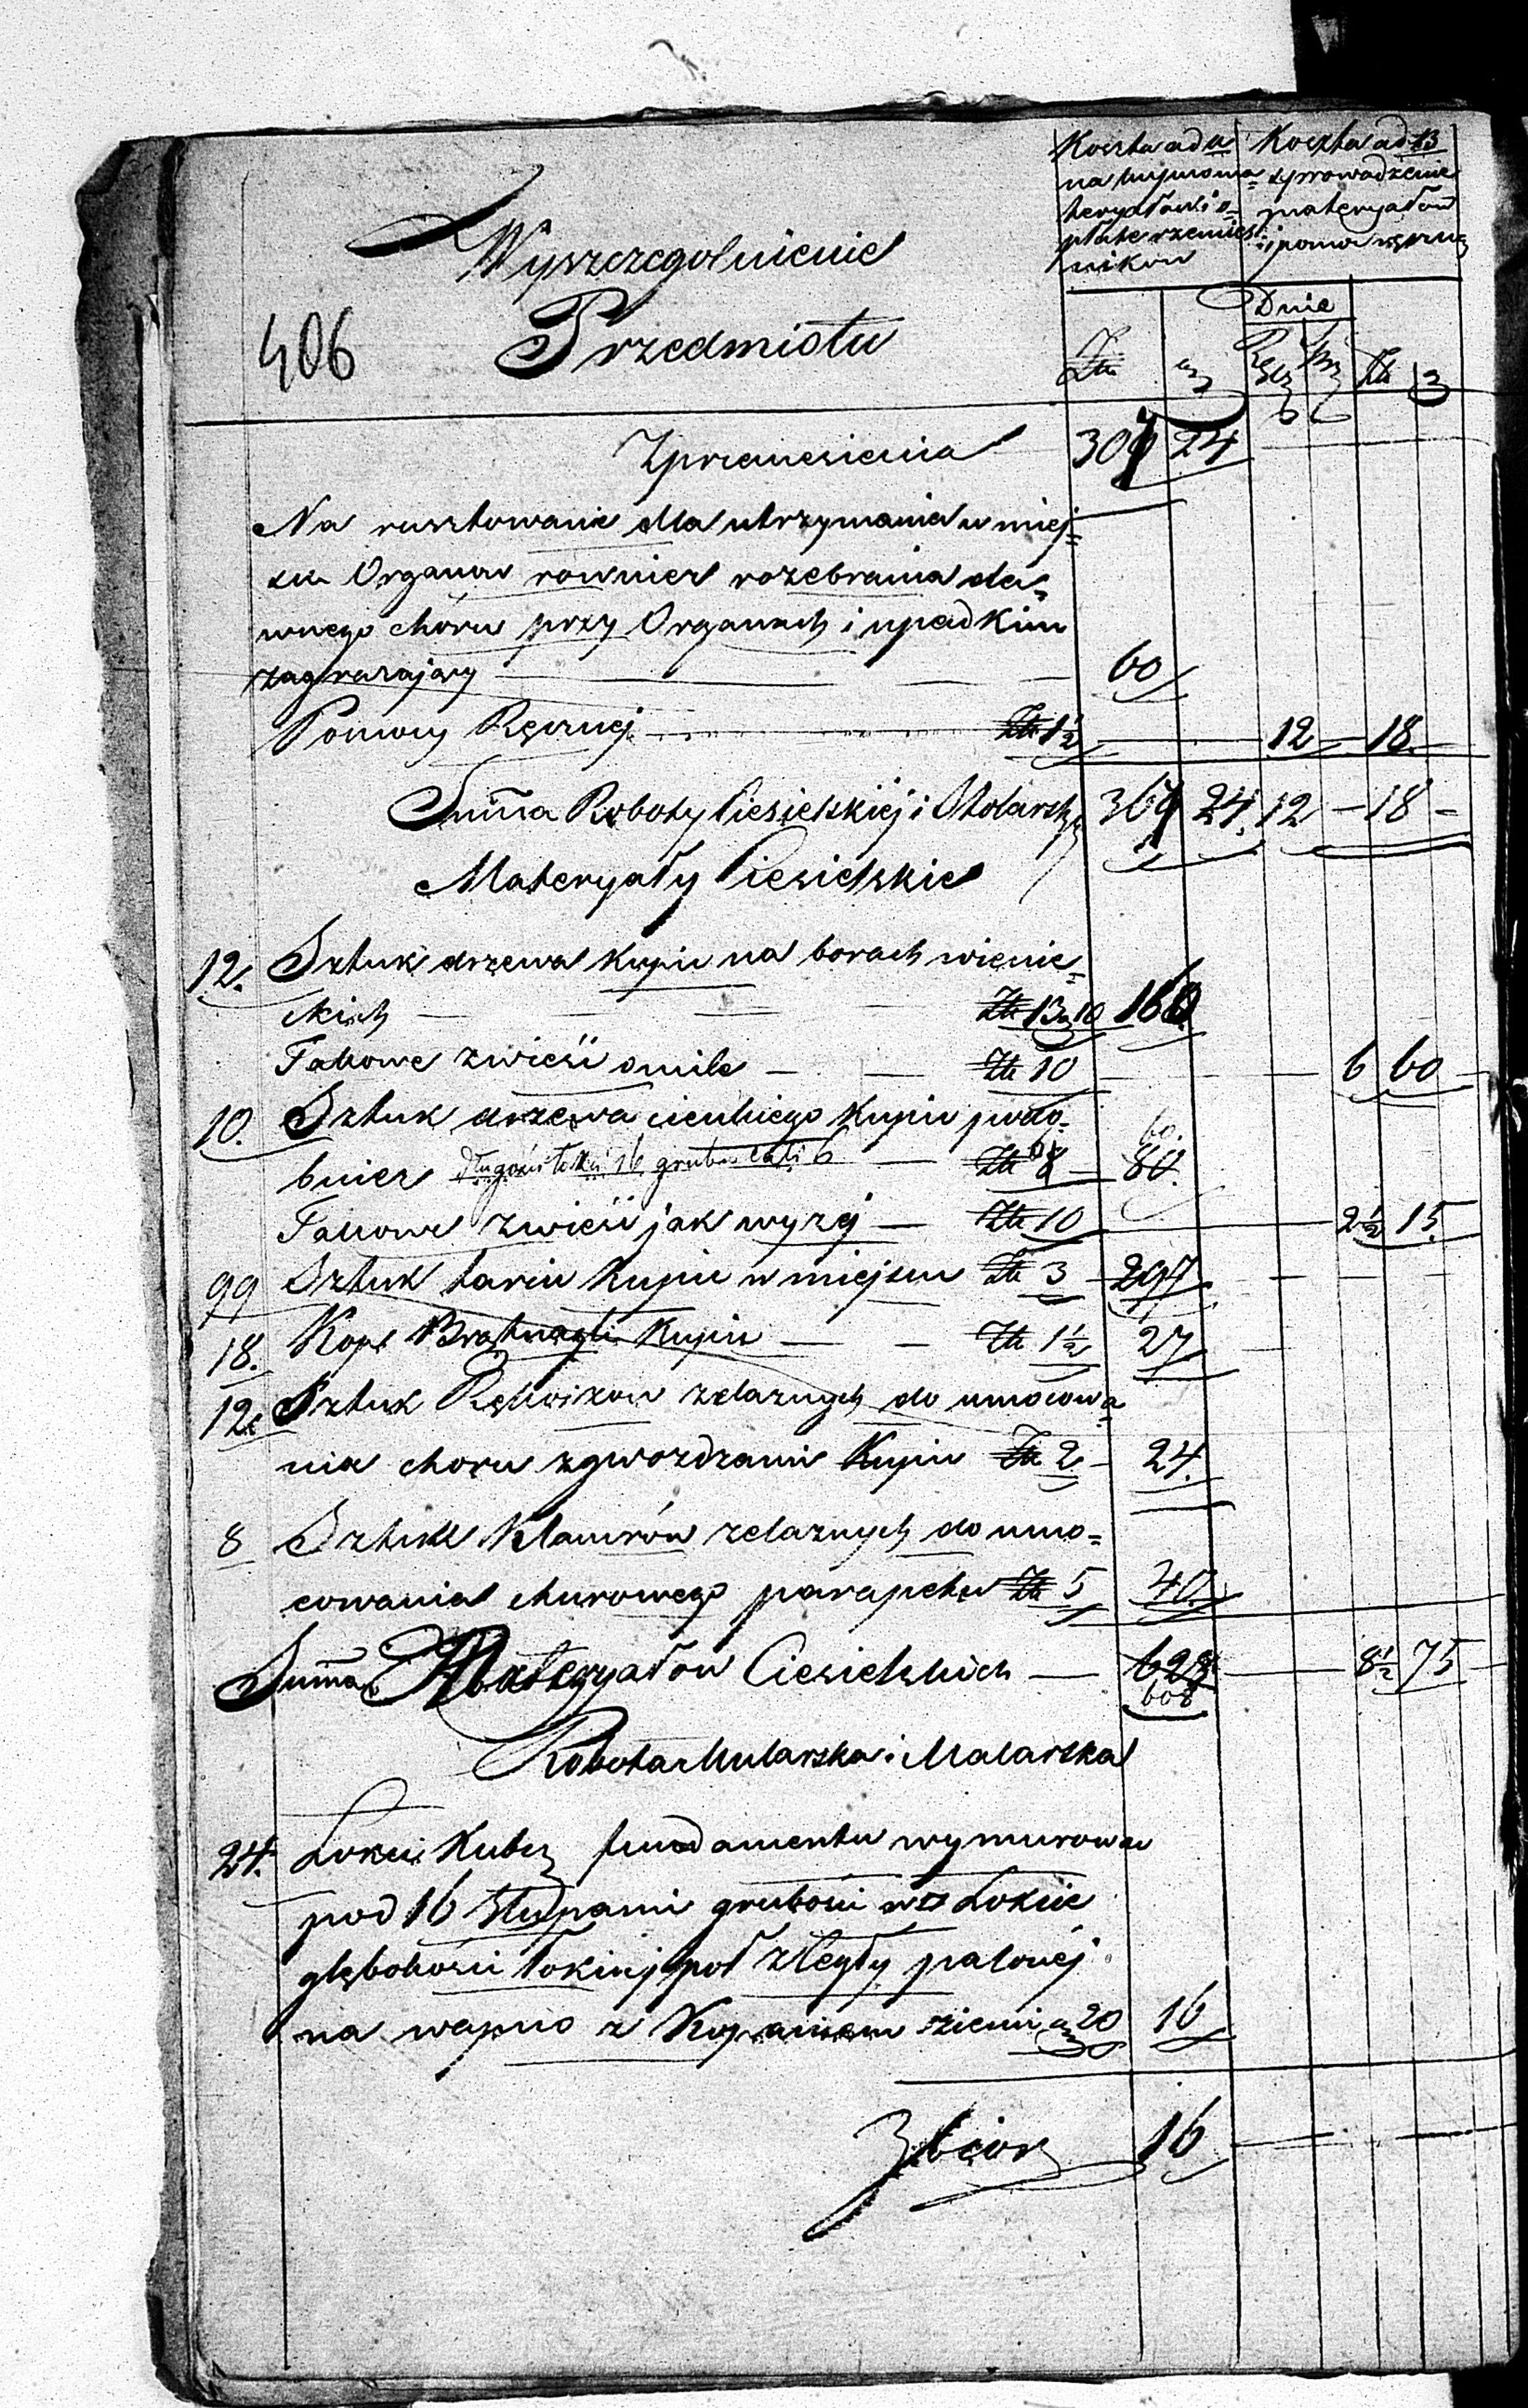 Koszta ad a
na kupno ma=
teryałów i o=
płatę rzemieśl
ników
Koszta ad B
sprowadzenie
materyałów
i pomoc ręczną
Wyszczegolnienie
Przedmiotu
406
Dnie
Zł
gr
Zł
gr
Zprzeniesienia 307 24
Na rusztowanie dla utrzymania w miej=
scu Organów rownież rozebrania da=
wnego chóru przy Organach i upadkiem
zagrażający 60
Pomocy Ręcznej Zł 1½ 12 18
Summa Roboty Ciesielskiej i Stolarsk 367 24 12 18
Materyały Ciesielskie
12. Sztuk drzewa kupić na borach wienie=
ckich Zł 13 gr 10 160
Takowe zwieść o mile Zł 10 6 60
10. Sztuk drzewa cienkiego kupić podo=
bnież długości łokci 16 grubo cali 6 Zł 6 8 60. 80.
Takowe zwieść jak wyżej Zł 10 2½ 15
99 Sztuk tarcic kupić w miejscu Zł 3 297
18. Kop Bratnagli kupić Zł 1½ 27
12 Sztuk żelaznych do umocowa=
nia choru z gwozdzami kupić Zł 2 24.
8 Sztuk Klamrów żelaznych do umo=
cowania churowego parapetu Zł 5 40
Summa Materyałow Ciesielskich 628 8½ 75
608
Robota Mularska i Malarska
24. Łokci Kubcz fundamentu wymurować
pod 16 słupami grubości Łokcie
głębokości łokcia i poł z Cegły palonéj
na wapno z Kopaniem ziemi a gr 20 16
Zbior 16